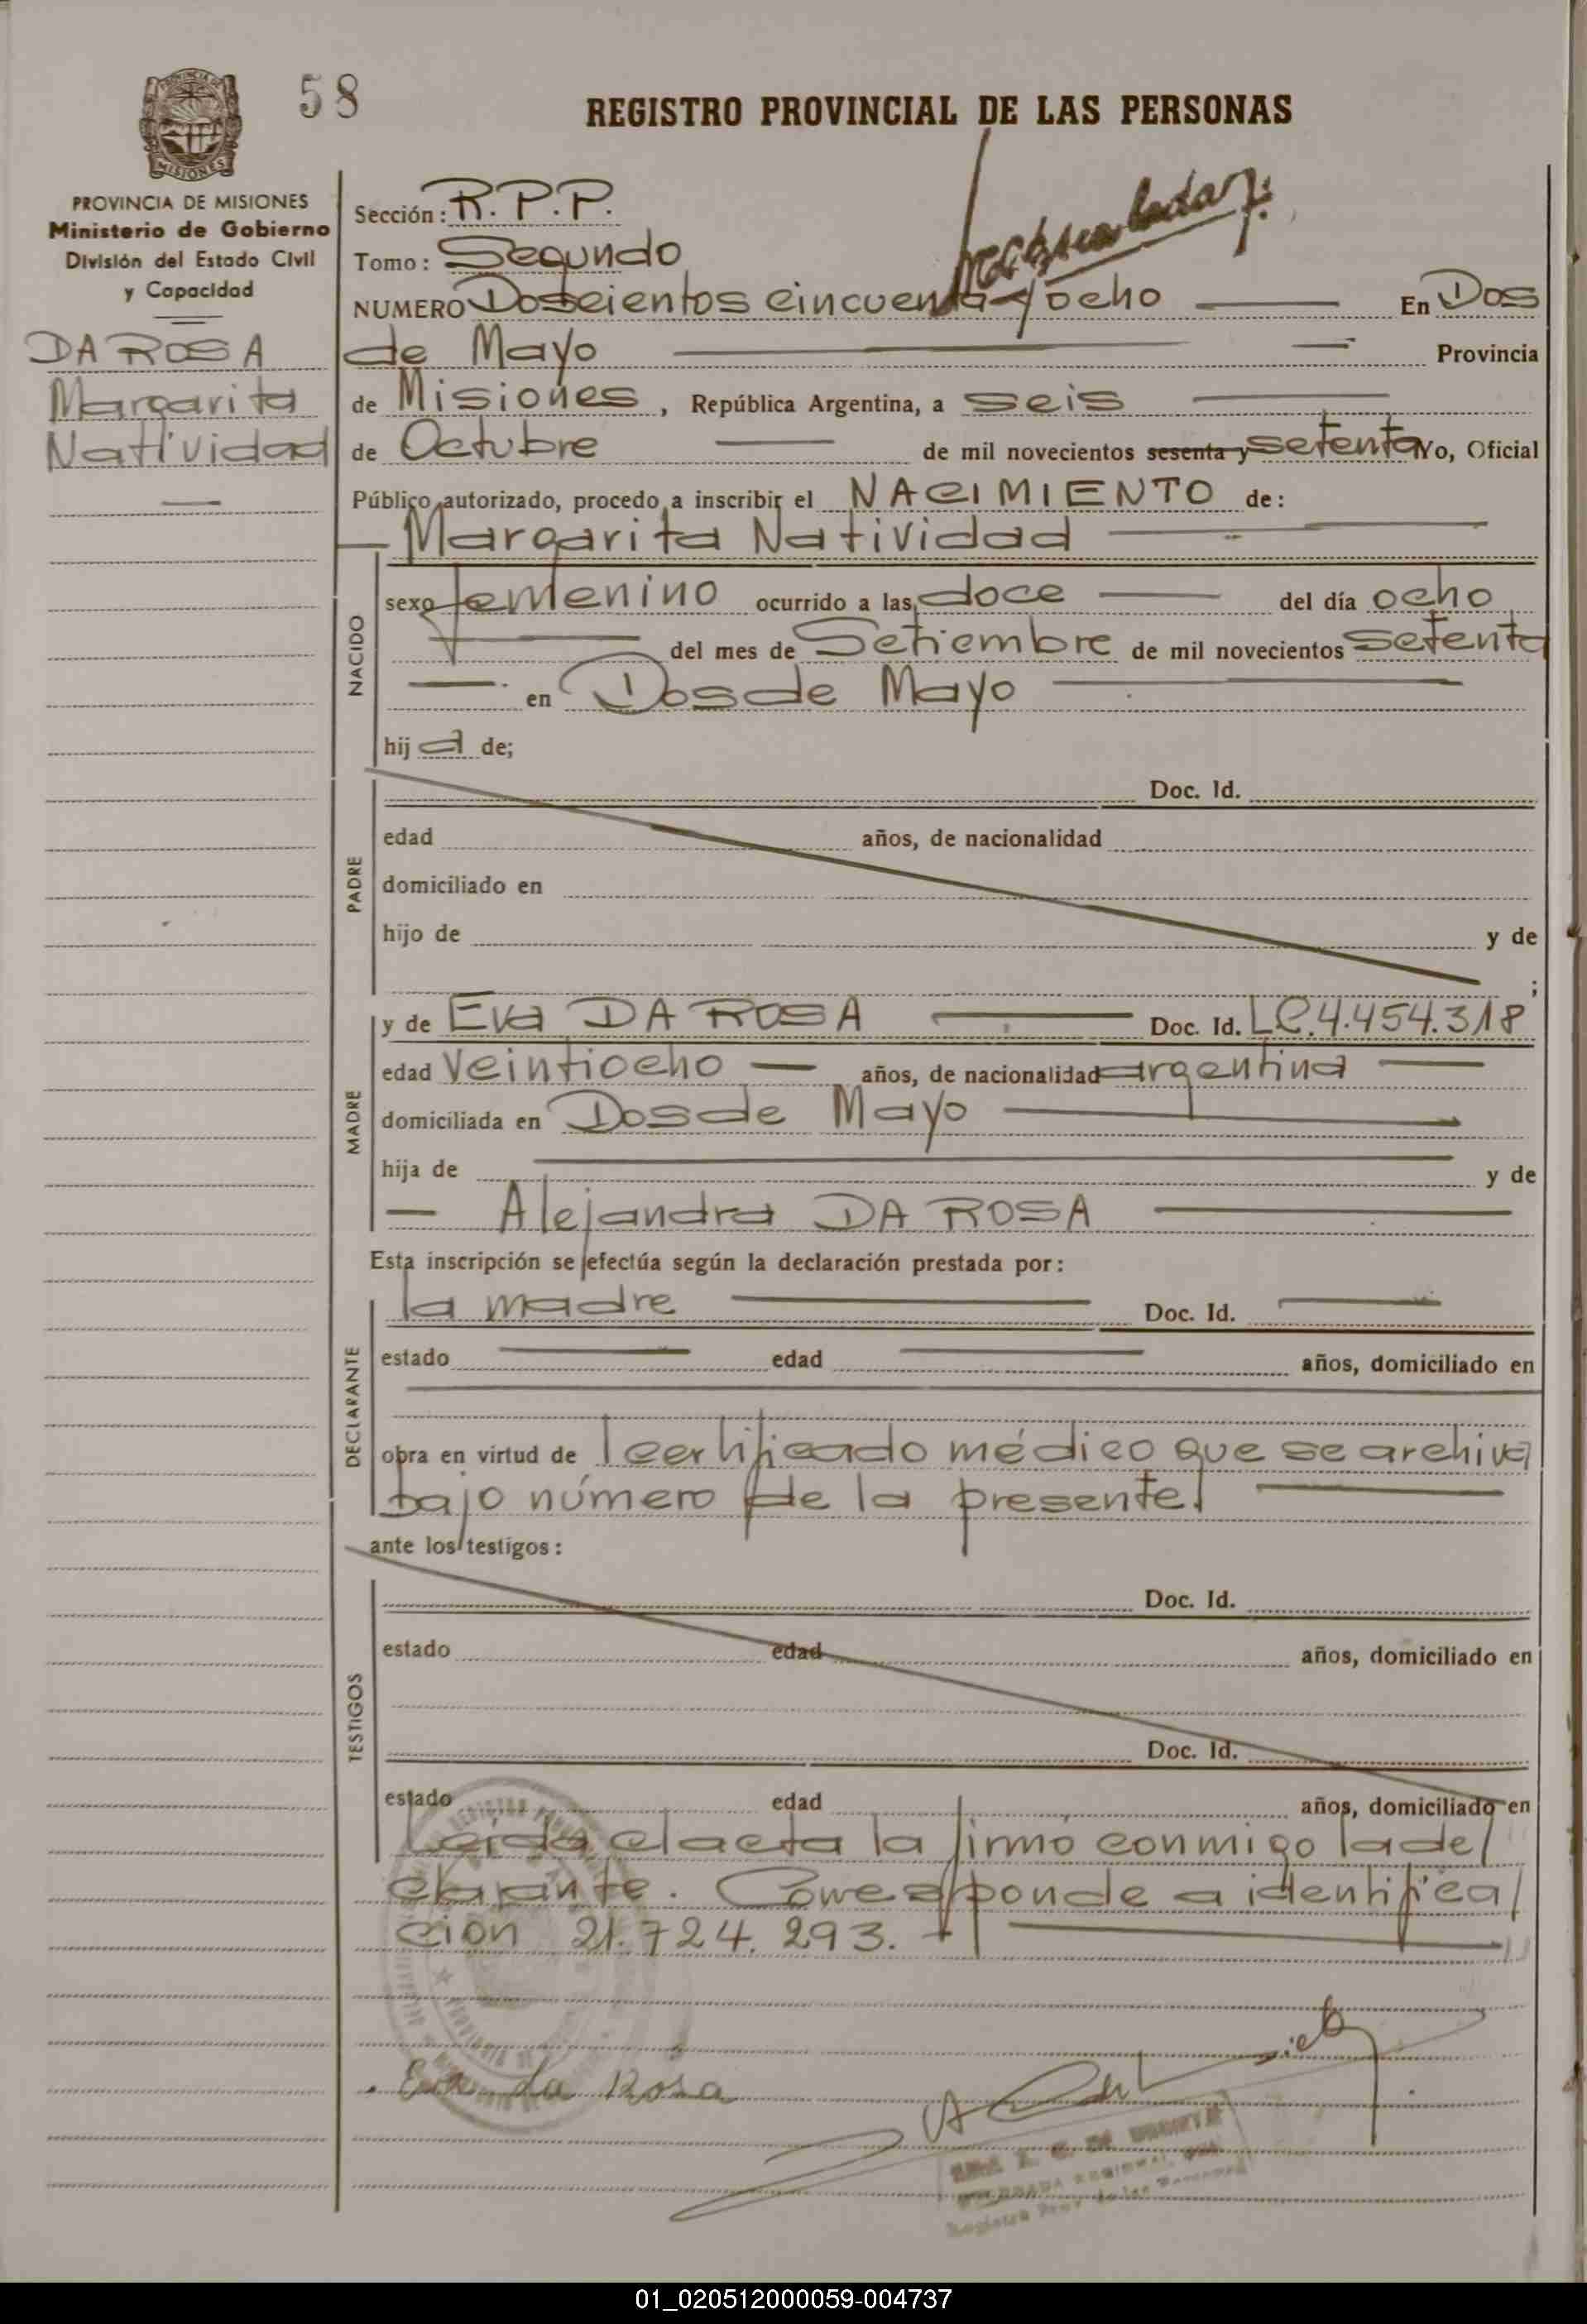 58
REGISTRO PROVINCIAL DE LAS PERSONAS
PROVINCIA DE MISIONES
Ministerio de Gobierno
División del Estado Civil
y Capacidad
DA ROSA
Margarita
Natividad
Sección: R.P.P.
Tomo: Segundo
NUMERO Doscientos cincuenta y ocho En Dos
de Mayo Provincia
de Misiones, República Argentina, a seis
de Octubre de mil novecientos sesenta y setenta Yo, Oficial
Público autorizado, procedo a inscribir el NACIMIENTO de:
Margarita Natividad
NACIDO
sexo femenino ocurrido a las doce del día ocho
del mes de Setiembre de mil novecientos setenta
en Dos de Mayo
hija de;
PADRE
Doc. Id.
edad años, de nacionalidad
domiciliado en
hijo de y de
;
MADRE
y de Eva DA ROSA Doc. Id. LC.4.454.318
edad veintiocho años, de nacionalidad argentina
domiciliada en Dos de Mayo
hija de y de
Alejandra DA ROSA
Esta inscripción se efectúa según la declaración prestada por:
DECLARANTE
la madre Doc. Id.
estado edad años, domiciliado en
obra en virtud de certificado médico que se archiva
bajo número de la presente.
ante los testigos:
TESTIGOS
Doc. Id.
estado edad años, domiciliado en
Doc. Id.
estado edad años, domiciliado en
Leida el acta la firmó conmigo la de
clarante. Corresponde a identifica
ción 21.724.293.
Eva da Rosa
01_020512000059-004737